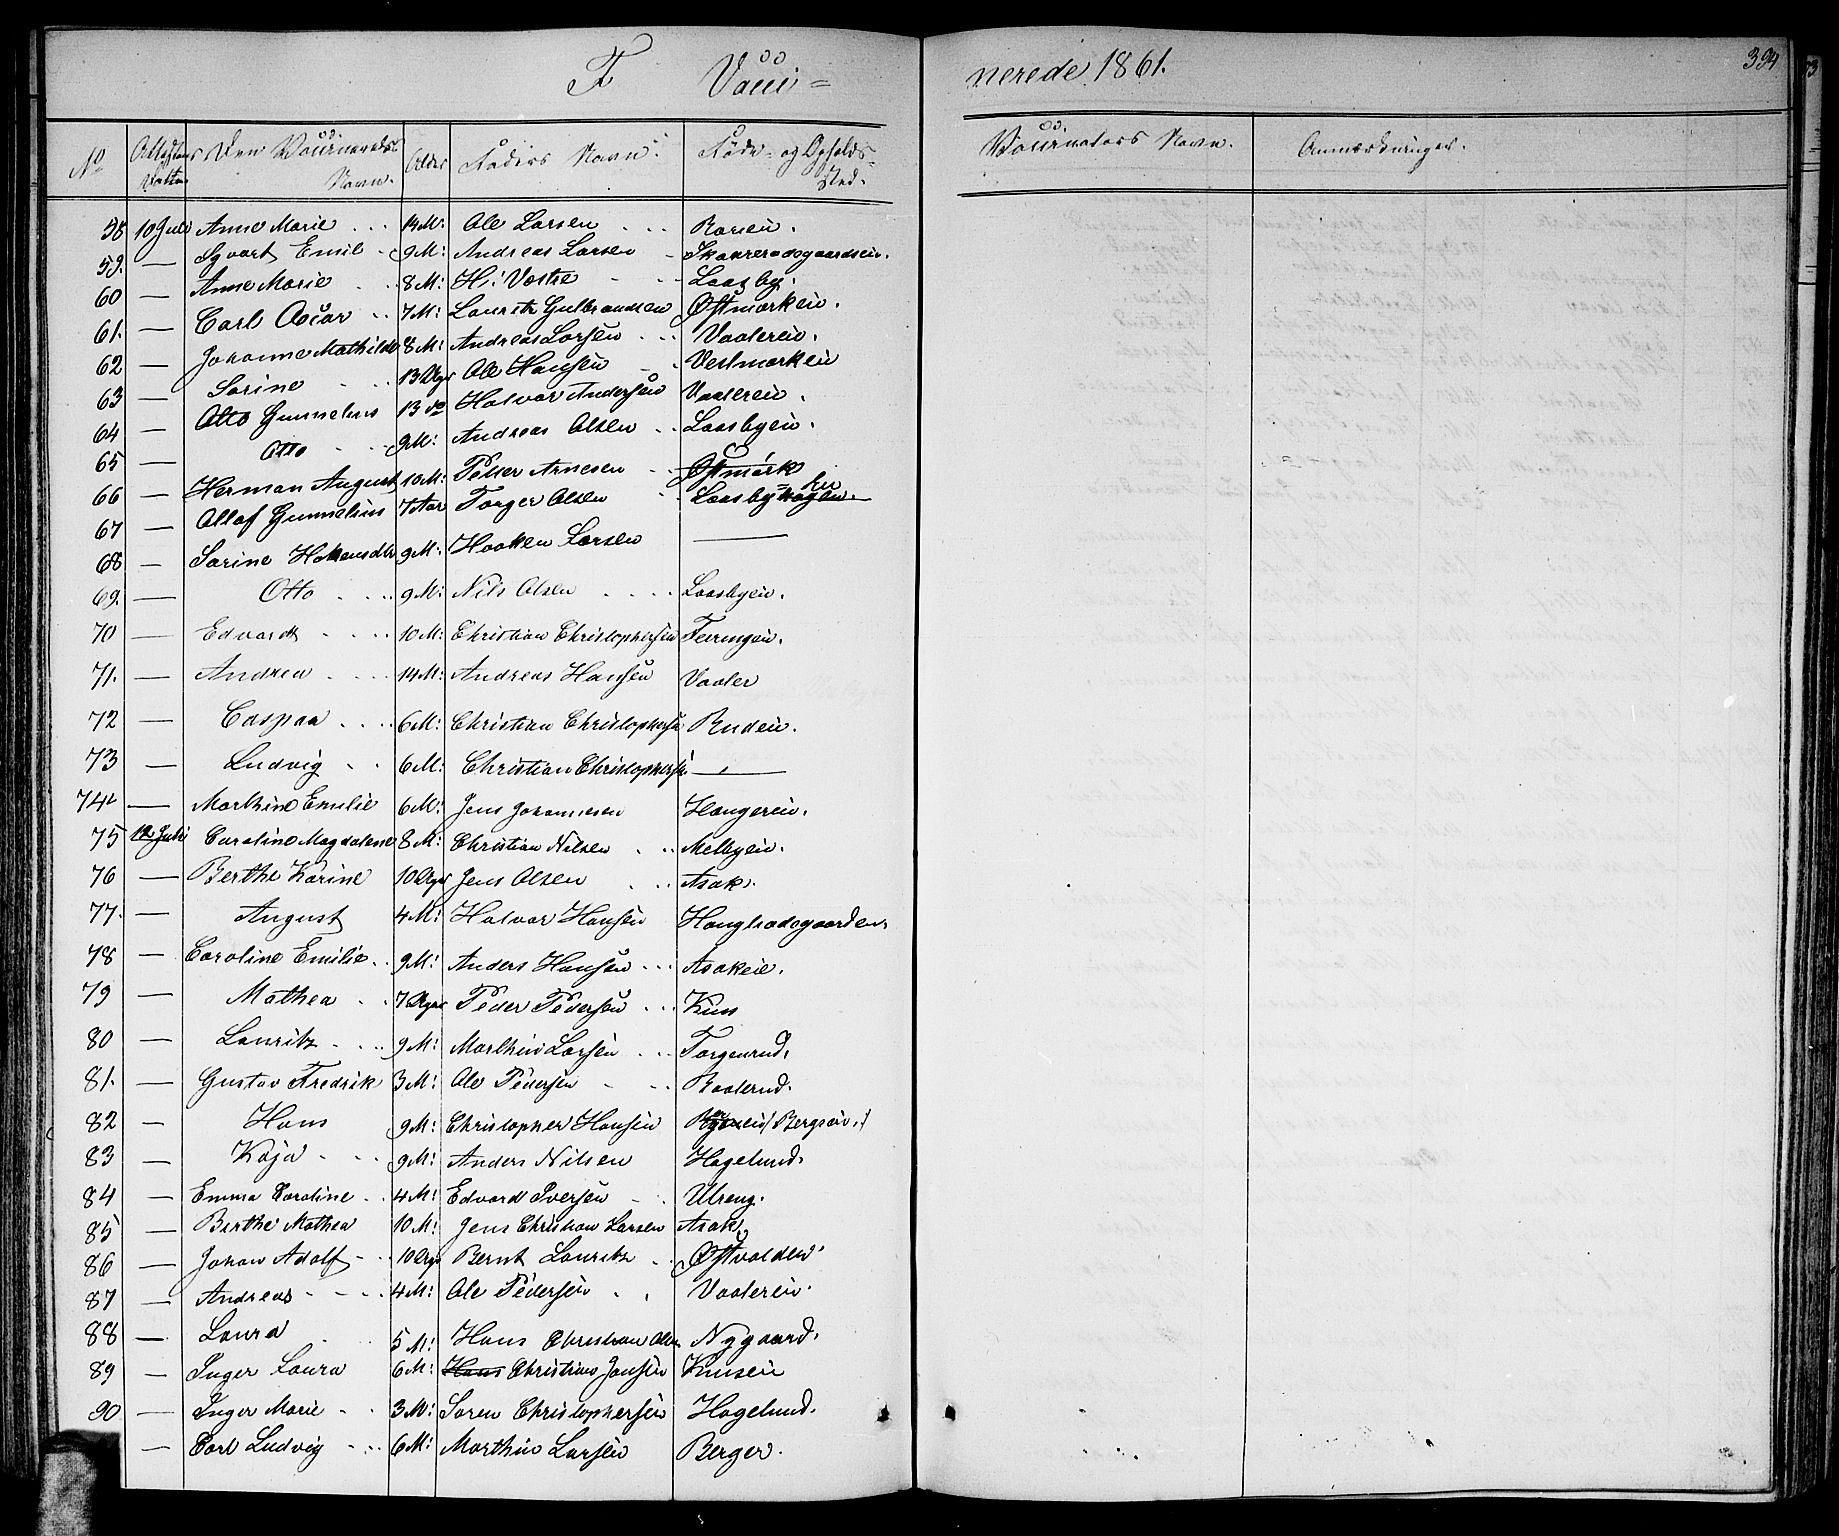 F Vacci= nerede 1861. 394
No Attestens Datum Den Vaccineredes Navn. Alder Faders Navn. Føde- og Opholds-Sted. Vaccinators Navn. Anmærkninger.
58 10 Juli Anne Marie 14 M: Ole Larsen
59. — Syvart Emil 9 M: Andreas Larsen
60 — Anne Marie 8 M: H: Vestre Laasby.
61. — Carl Oscar 7 M: Lauritz Gulbrandsen Østmarken.
62 — Johanne Mathilde 8 M: Andreas Larsen Vaalerein.
63 — Sorine 13 Uger Ole Hansen Vestmarken
64 — Otto Gunnelius 13 do Halvor Andersen Vaalerein.
65 — Otto 9 M: Andreas Olsen Laasbyein.
66 — Herman August 10 M: Peder Arnesen Østmark
67 — Ollaf Gunnelius 7 Aar Torger Olsen Laasbyhagen.
68 — Sorine 9 M: Haaken Larsen —
69. — Otto 9 M: Nils Olsen Laasbyein.
70 — Edvardt 10 M: Christian Christophersen
71. — Andrea 14 M: Andreas Hansen Vaaler
72 — Caspaa 6 M: Christian Christophersen Rudein.
73 — Ludvig 6 M: Christian Christophersen —
74 — Marthine Emilie 6 M: Jens Johannesen Haugerein.
75 12 Juli Caroline Magdalene 8 M: Christian Nilsen Melbyein.
76 — Berthe Karine 10 Uger Jens Olsen Asak.
77. — August 4 M: Halvor Hansen
78 — Caroline Emilie 9 M: Anders Hansen Asakeie.
79 — Mathea 7 Uger Peder Pedersen Kius
80 — Lauritz 9 M: Marthin Larsen Torgenrud.
81. — Gustav Fredrik 3 M: Ole Pedersen Raalerud.
82 — Hans 9 M: Christopher Hansen
83 — Kaja 9 M: Anders Nilsen Hagelund.
84 — Emma Karoline 4 M: Edvard Iversen Ulreng.
85 — Berthe Mathea 10 M: Jens Christian Larsen Asak.
86 — Johan Adolf 10 Uger Bernt Lauritz Østvolden
87 — Andreas 4 M: Ole Pedersen Vaalerein.
88 — Laura 5 M: Hans Christian Olsen Nygaard.
89 — Inger Laura 6 M: Hans Christian Jansen Kiusein
90 — Inger Marie 3 M: Soren Christophersen Hagelund.
— Carl Ludvig 6 M: Marthin Larsen Berger.